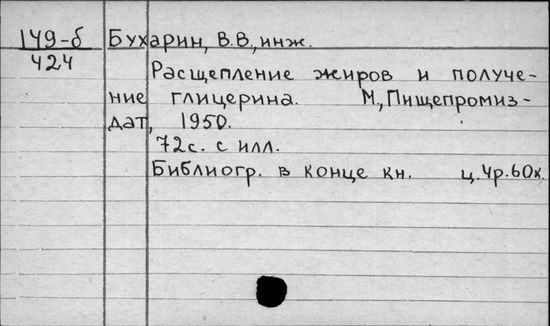 149-б Бухарин, В.В., инж.
424
Расщепление жиров и получе-
ние глицерина. М., Пищепромиз-
дат, 1950.
72с. с илл.
Библиогр. в конце кн. ц. 4р. 60к.